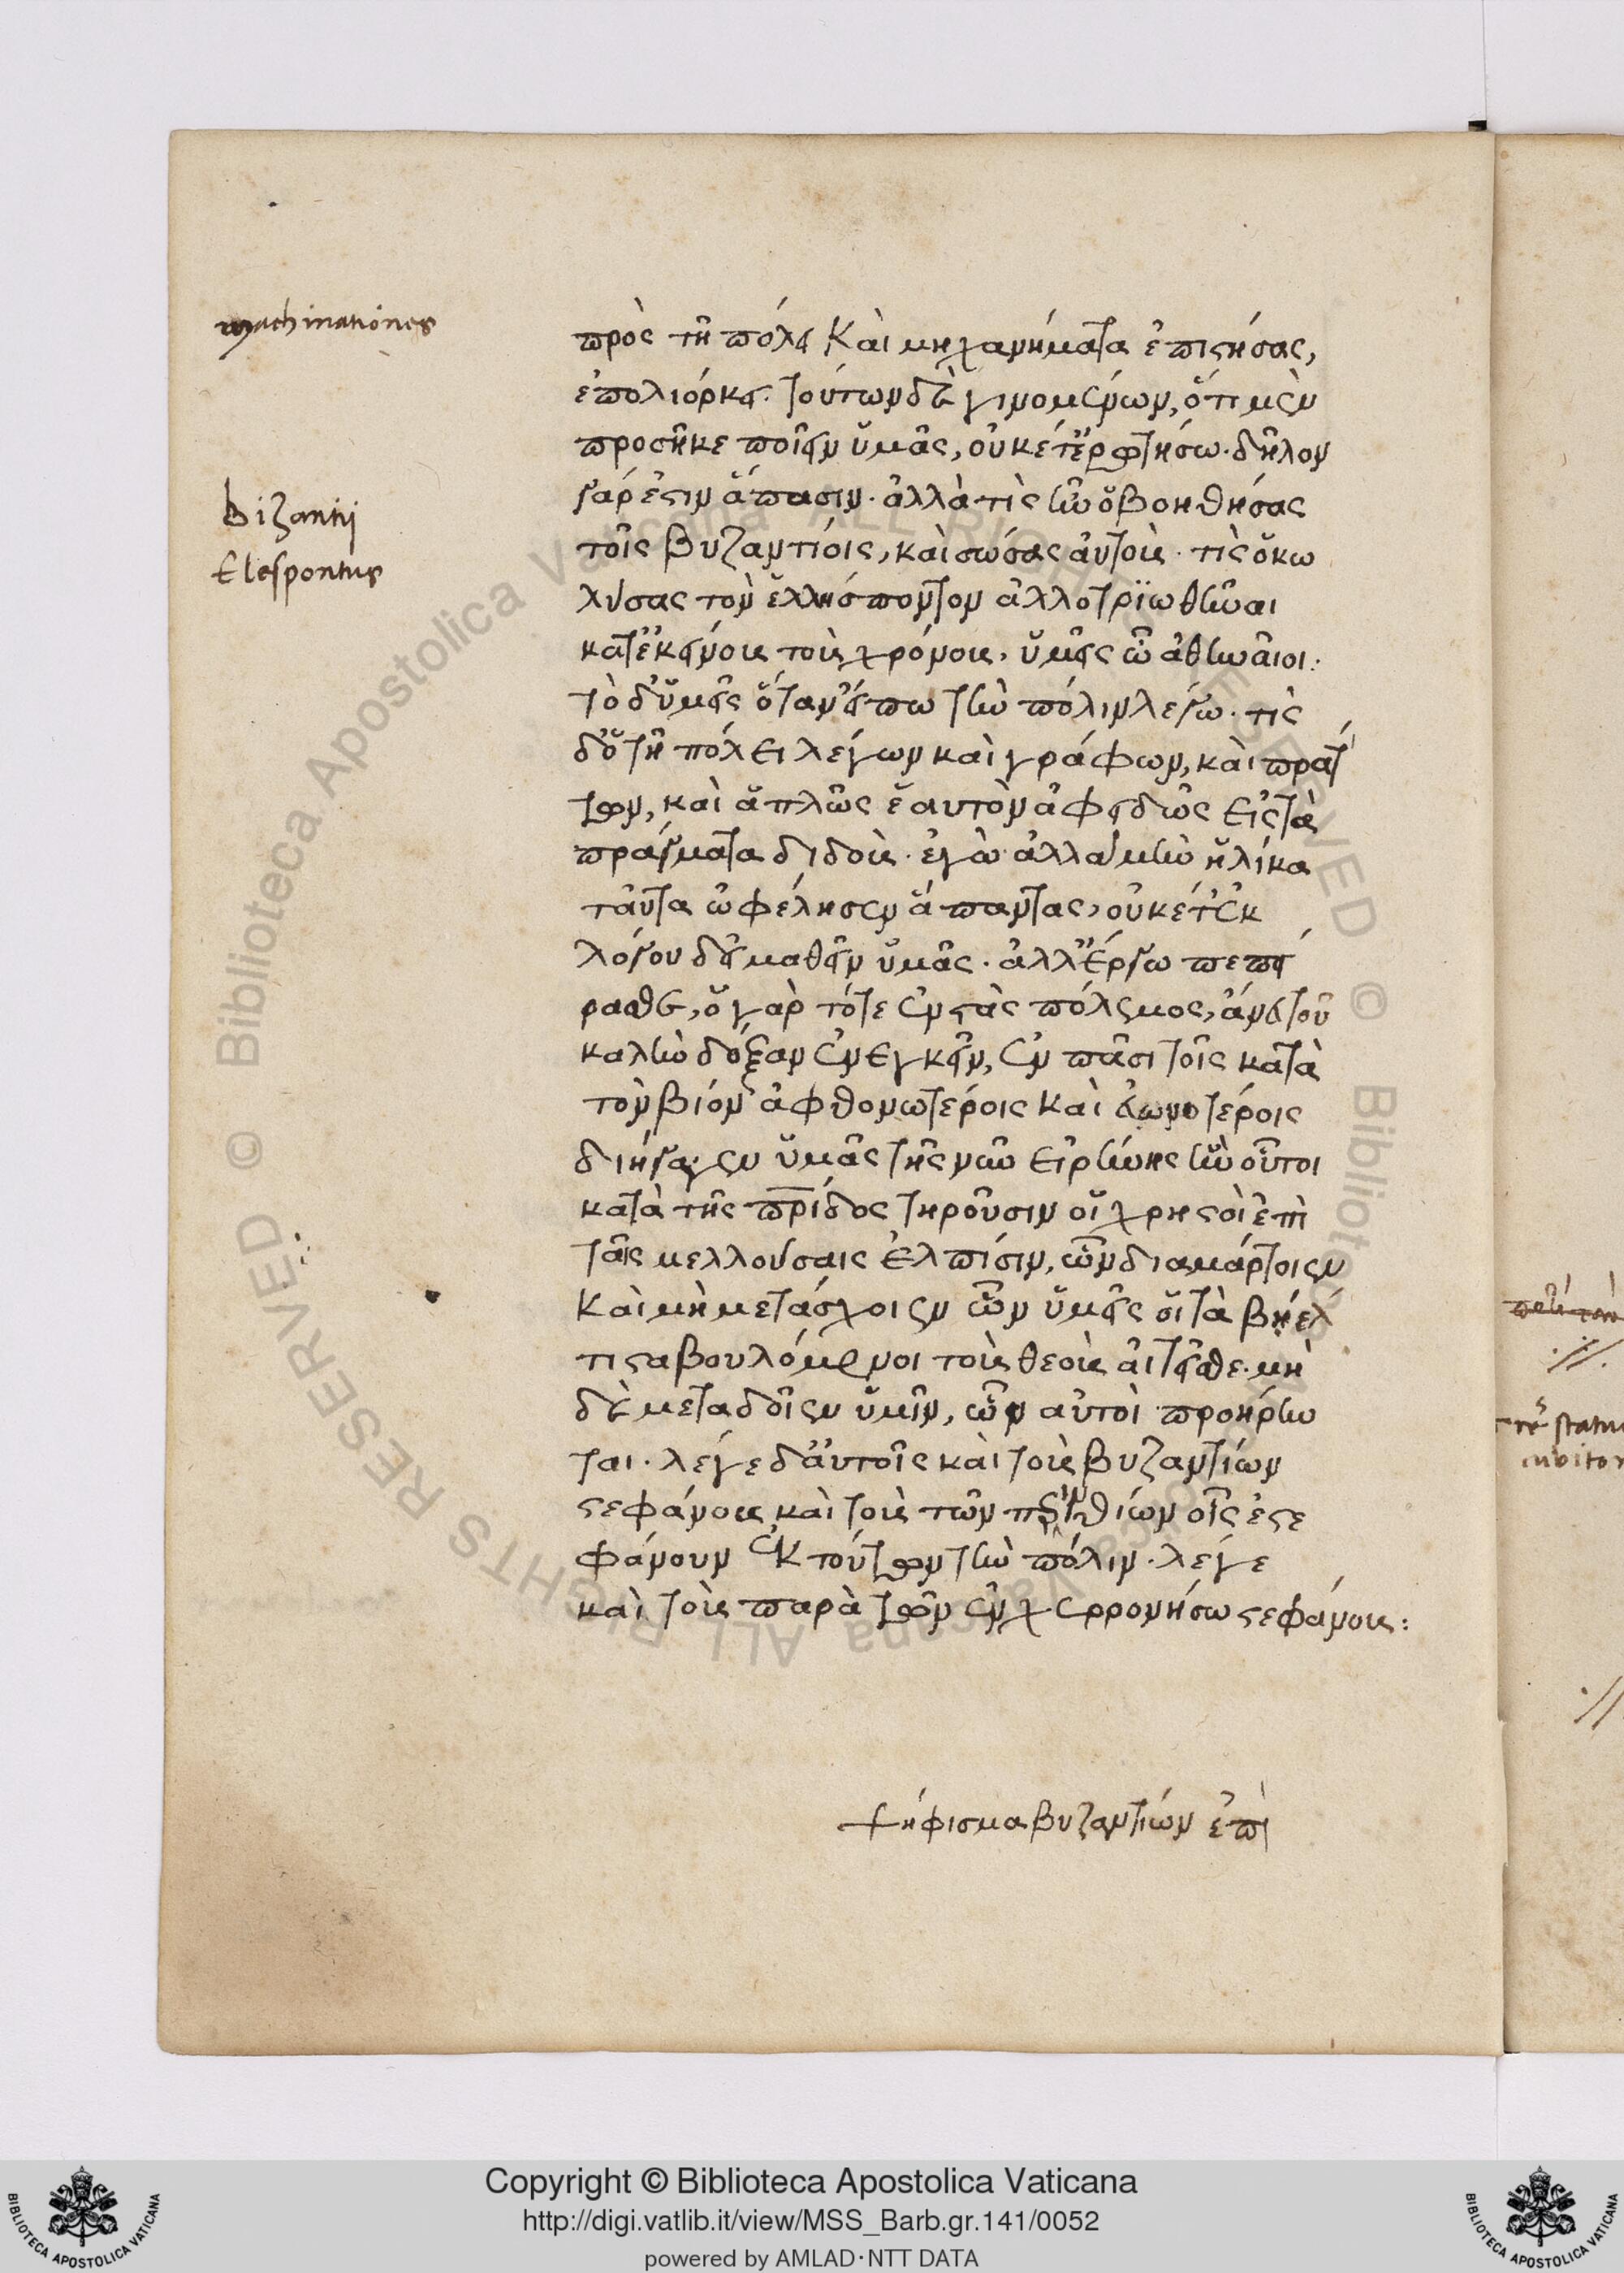 machinationes
πρὸς τῆ πόλει καὶ μηχανήματα ἐπιστήσας,
ἐπολιόρκει. τούτων δὲ γινομένων, ὅτι μὲν
προσῆκε ποιεῖν ὑμᾶς, οὐκέτ' ἐρωτήσω. δῆλον
γάρ ἐστιν ἅπασιν. ἀλλὰ τὶς ἦν ὁ βοηθήσας
Bizantij
τοῖς βυζαντίοις, καὶ σώσας αὐτοὺς. τὶς ὁ κω
Elespontus
λύσας τὸν ἑλλήσποντον ἀλλοτρϊωθῆναι
κατ' ἐκείνους τοὺς χρόνους, ὑμεῖς ὦ ἀθηναῖοι.
τὸ δ' ὑμεῖς ὅταν εἴπω τὴν πόλιν λέγω. τὶς
δ' ὁ τῆ πόλει λέγων καὶ γράφων, καὶ πράτ
των, καὶ ἁπλῶς ἑαυτὸν ἀφειδῶς εἰς τὰ
πράγματα διδοὺς. ἐγὼ. ἀλλὰ μὴν ἡλίκα
ταῦτα ὠφέλησεν ἅπαντας, οὐκέτ' ἐκ
λόγου δεῖ μαθεῖν ὑμᾶς. ἀλλ' ἔργω πεπεί
ρασθε, ὁ γὰρ τότε ἐνστὰς πόλεμος, ἄνευ τοῦ
καλὴν δόξαν ἐνεγκεῖν, ἐν πᾶσι τοῖς κατὰ
τὸν βίον ἀφθονωτέροις καὶ εὐωνοτέροις
διήγαγεν ὑμᾶς τῆς νῦν εἰρήνης ἣν οὗτοι
κατὰ τῆς πρίδος τηροῦσιν οἱ χρηστοὶ ἐπὶ
ταῖς μελλούσαις ἐλπίσιν, ὧν διαμάρτοιεν
καὶ μὴ μετάσχοιεν ὧν ὑμεῖς οἱ τὰ βήελ
τιστα βουλόμενοι τοὺς θεοὺς αἰτεῖσθε. μὴ
δὲ μεταδοῖεν ὑμῖν, ὧν αὐτοὶ προήρην
ται. λέγε δ' αὐτοῖς καὶ τοὺς βυζαντίων
στεφάνους καὶ τοὺς τῶν περινθίων οἷς ἐστε
φάνουν ἐκ τούτων τὴν πόλιν. λέγε
καὶ τοὺς παρὰ τῶν ἐν χερρονήσω στεφάνους:
ψήφισμα βυζαντίων ἐπὶ
Copyright © Biblioteca Apostolica Vaticana
http://digi.vatlib.it/view/MSS_Barb.gr.141/0052
powered by AMLAD·NTT DATA